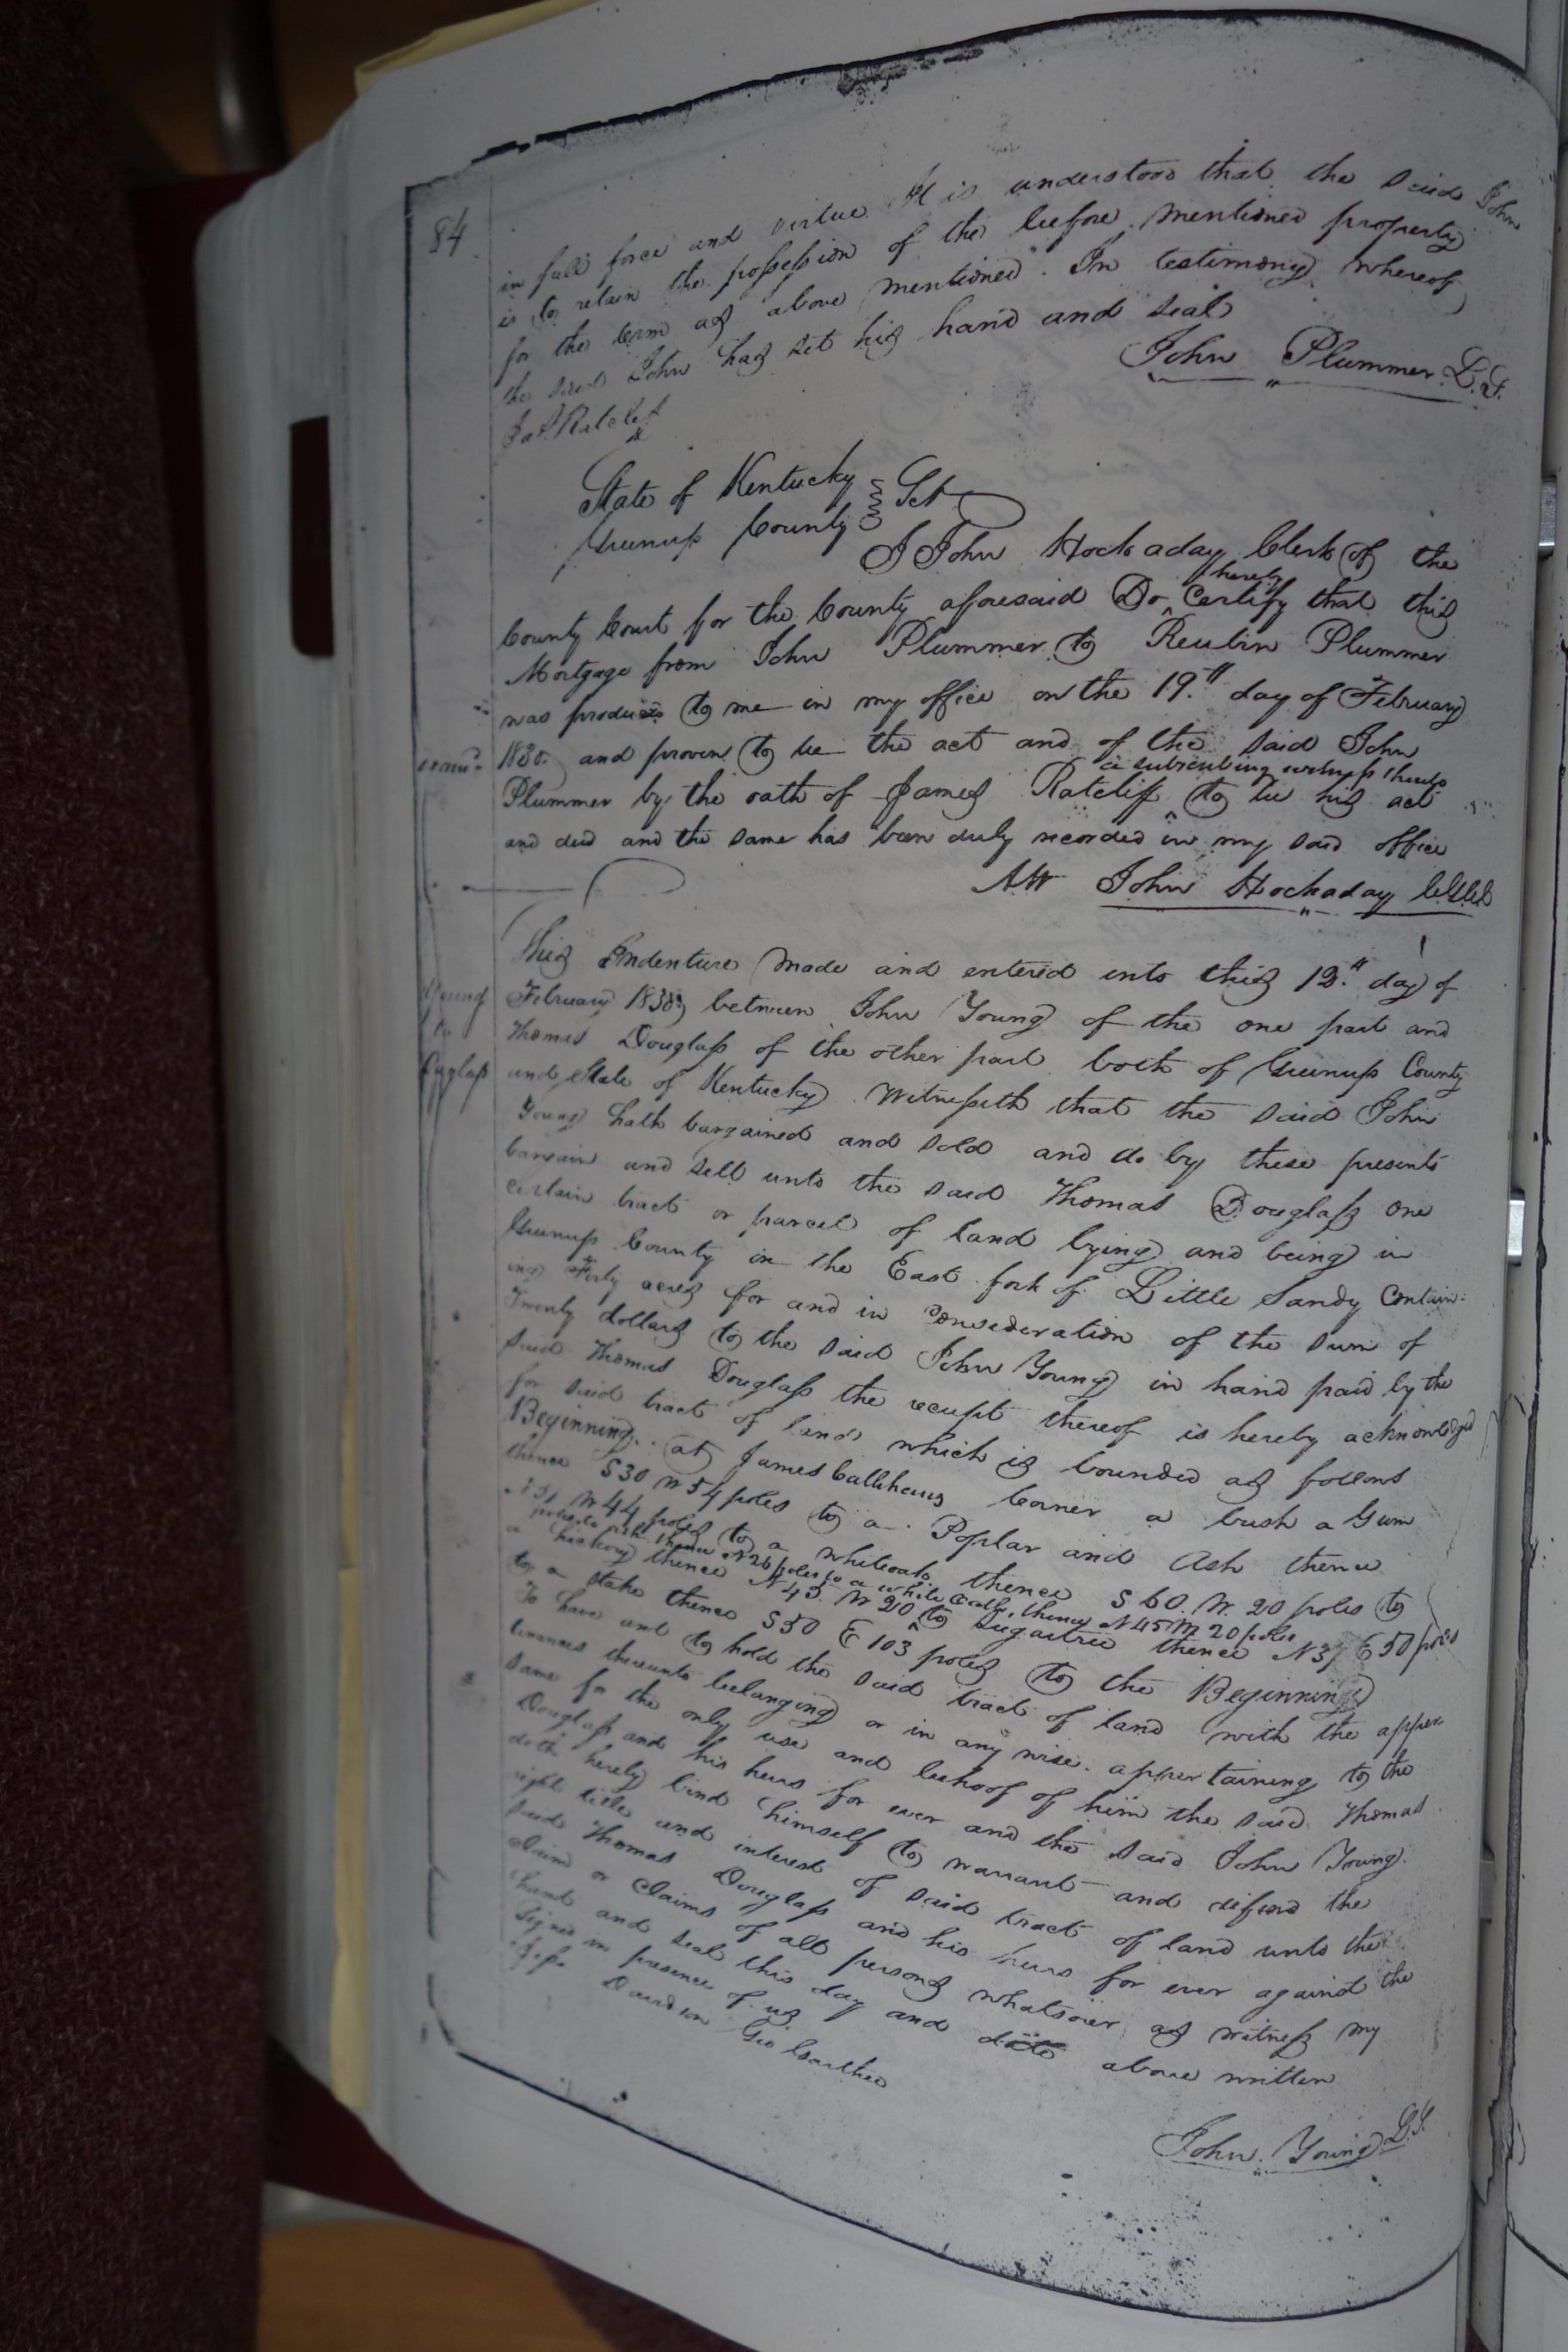 84
in full force and virtue. It is understood that the said John
is to retain the possession of the before mentioned property
for the term as above mentioned. In testimony whereof
the said John has set his hand and seal
John Plummer L.S.
Jas. Ratcliff
State of Kentucky
Greenup County } Sct
I John Hockaday Clerk of the
County Court for the County aforesaid Do hereby Certify that this
Mortgage from John Plummer to Reubin Plummer
was produced to me in my office on the 19th day of February
and proven to be the act and of the said John
a subscribing witness thereto
Plummer by the oath of James Ratcliff to be his act
and deed and the same has been duly recorded in my said office
Att John Hockaday
Young
to
Duglass
This Indenture made and entered into this day of
February between John Young of the one part and
Thomas Douglass of the other part both of Greenup County
and State of Kentucky Witnesseth that the said John
Young hath bargained and sold and do by these presents
bargain and sell unto the said Thomas Douglass one
certain tract or parcel of land lying and being in
Greenup County in the East fork of Little Sandy Contain-
ing Forty acres for and in consideration of the sum of
Twenty dollars to the said John Young in hand paid by the
said Thomas Douglass the receipt thereof is hereby acknowledged
for said tract of land which is bounded as follows
Beginning at James Callihans Corner a bush a Gum
thence S30 W 54 poles to a Poplar and Ash thence
W 44 poles to a whiteoak thence S 60 W. 20 poles to
thence N 26 poles to a white oak, thence N 45 W 20 poles
a hickory thence N 45 W 20 to sugartree thence E 50 poles
to a stake thence S50 E 103 poles to the Beginning
To have and to hold the said tract of land with the apper
tenances thereunto belonging or in any wise appertaining to the
same for the only use and behoof of him the said Thomas
Douglass and his heirs for ever and the said John Young
doth hereby bind himself to warrant and defend the
right title and interest of said tract of land unto the
said Thomas Douglass and his heirs for ever against the
claim or claims of all persons whatsoever as witness my
hand and seal this day and date above written
Signed in presence of us
Davidson Geo
John Young L.S.